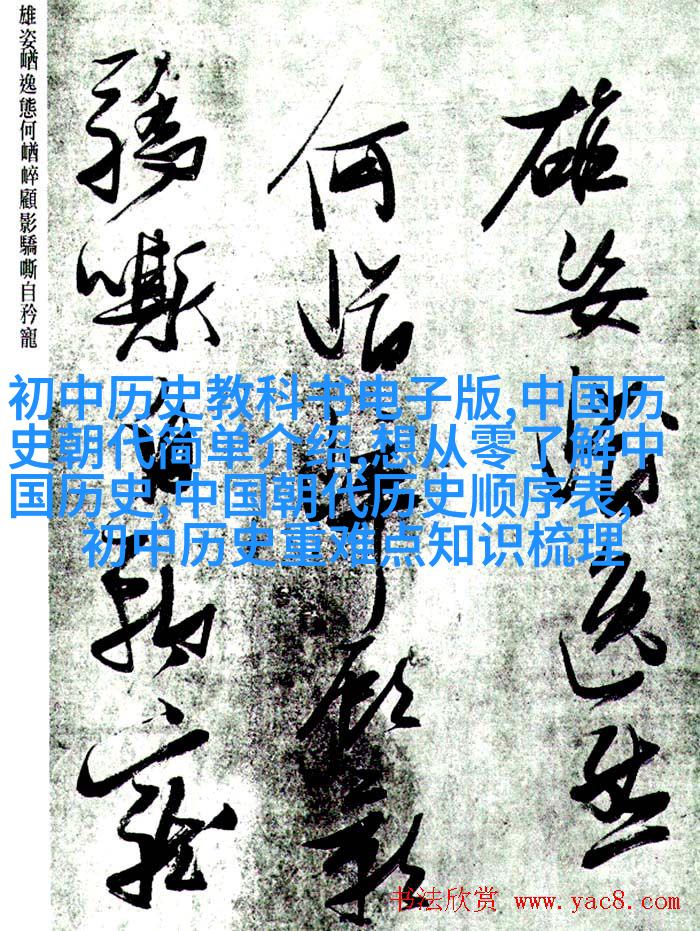 雄姿崷逸態
何崷崒顧影
驕嘶自矜寵
雄姿崷逸態何崷崒顧影驕嘶自矜寵
初中历史教科书电子版,中国历
史朝代简单介绍,想从零了解中
国历史,中国朝代历史顺序表,
初中历史重难点知识梳理
书法欣赏 www.yac8.com